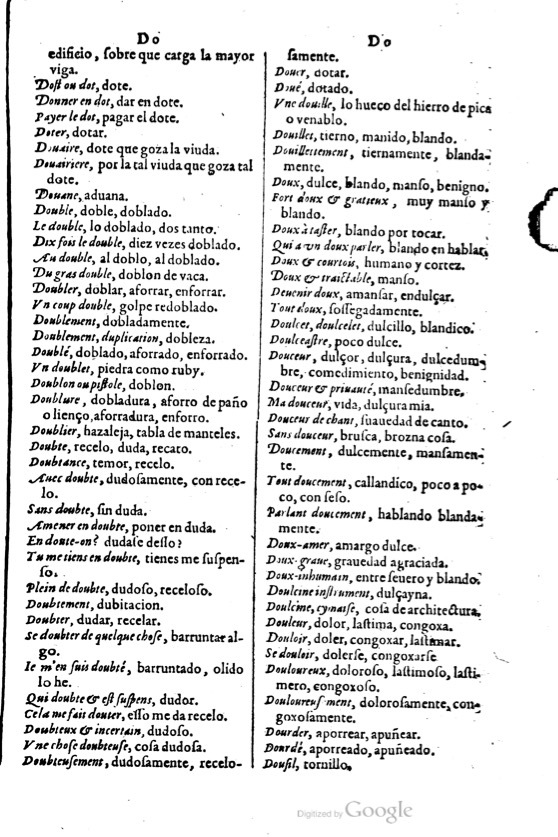 Do
edificio, ſobre que carga la mayor
viga.
Doſt ou dot, dote.
Donner en dot, dar en dote.
Payer le dot, pagar el dote.
Doter, dotar.
Douaire, dote que goza la viuda.
Douairiere, por la tal viuda que goza tal
dote.
Douane, aduana.
Double, doble, doblado.
Le double, lo doblado, dos tanto.
Dix fois le double, diez vezes doblado.
Au double, al doblo, al doblado.
Du gras double, doblon de vaca.
Doubler, doblar, aforrar, enforrar.
Vn coup double, golpe redoblado.
Doublement, dobladamente.
Doublement, duplication, dobleza.
Doublé, doblado, aforrado, enforrado.
Vn doublet, piedra como ruby.
Doublon ou piſtole, doblon.
Doublure, dobladura, aforro de paño
o lienço, aforradura, enforro.
Doublier, hazaleja, tabla de manteles.
Doubte, recelo, duda, recato.
Doubtance, temor, recelo.
Auec doubte, dudoſamente, con rece-
lo.
Sans doubte, ſin duda.
Amener en doubte, poner en duda.
En doute-on? dudaſe deſſo?
Tu me tiens en doubte, tienes me ſuſpen-
ſo.
Plein de doubte, dudoſo, receloſo.
Doubtement, dubitacion.
Doubter, dudar, recelar.
Se doubter de quelque choſe, barruntar al-
go.
Ie m'en ſuis doubté, barruntado, olido
lo he.
Qui doubte & eſt ſuſpens, dudor.
Cela me fait douter, eſſo me da recelo.
Doubteux & incertain, dudoſo.
Vne choſe doubteuſe, coſa dudoſa.
Doubteuſement, dudoſamente, recelo-
Do
ſamente.
Douer, dotar.
Doué, dotado.
Vne douille, lo hueco del hierro de pica
o venablo.
Douillet, tierno, manido, blando.
Douillettement, tiernamente, blanda-
mente.
Doux, dulce, blando, manſo, benigno.
Fort doux & gratieux, muy manſo y
blando.
Doux à taſter, blando por tocar.
Qui a vn doux parler, blando en hablar.
Doux & courtois, humano y cortez.
Doux & traictable, manſo.
Deuenir doux, amanſar, endulçar.
Tout doux, ſoſſegadamente.
Doulcet, doucelet, dulcillo, blandico.
Doulceaſtre, poco dulce.
Douceur, dulçor, dulçura, dulcedum-
bre, comedimiento, benignidad.
Douceur & priuauté, manſedumbre.
Ma douceur, vida, dulçura mia.
Douceur de chant, ſuauedad de canto.
Sans douceur, bruſca, brozna coſa.
Doucement, dulcemente, manſamen-
te.
Tout doucement, callandico, poco a po-
co, con ſeſo.
Parlant doucement, hablando blanda-
mente.
Doux-amer, amargo dulce.
Doux-graue, grauedad agraciada.
Doux-inhumain, entre ſeuero y blando.
Doulcine inſtrument, dulçayna.
Doulcine, cymaiſe, coſa de architectura.
Douleur, dolor, laſtima, congoxa.
Douloir, doler, congoxar, laſtimar.
Se douloir, dolerſe, congoxarſe
Douloureux, doloroſo, laſtimoſo, laſti-
mero, congoxoſo.
Douloureuſ ment, doloroſamente, con-
goxoſamente.
Dourder, aporrear, apuñear.
Dourdé, aporreado, apuñeado.
Douſil, tornillo.
Digitized by Google